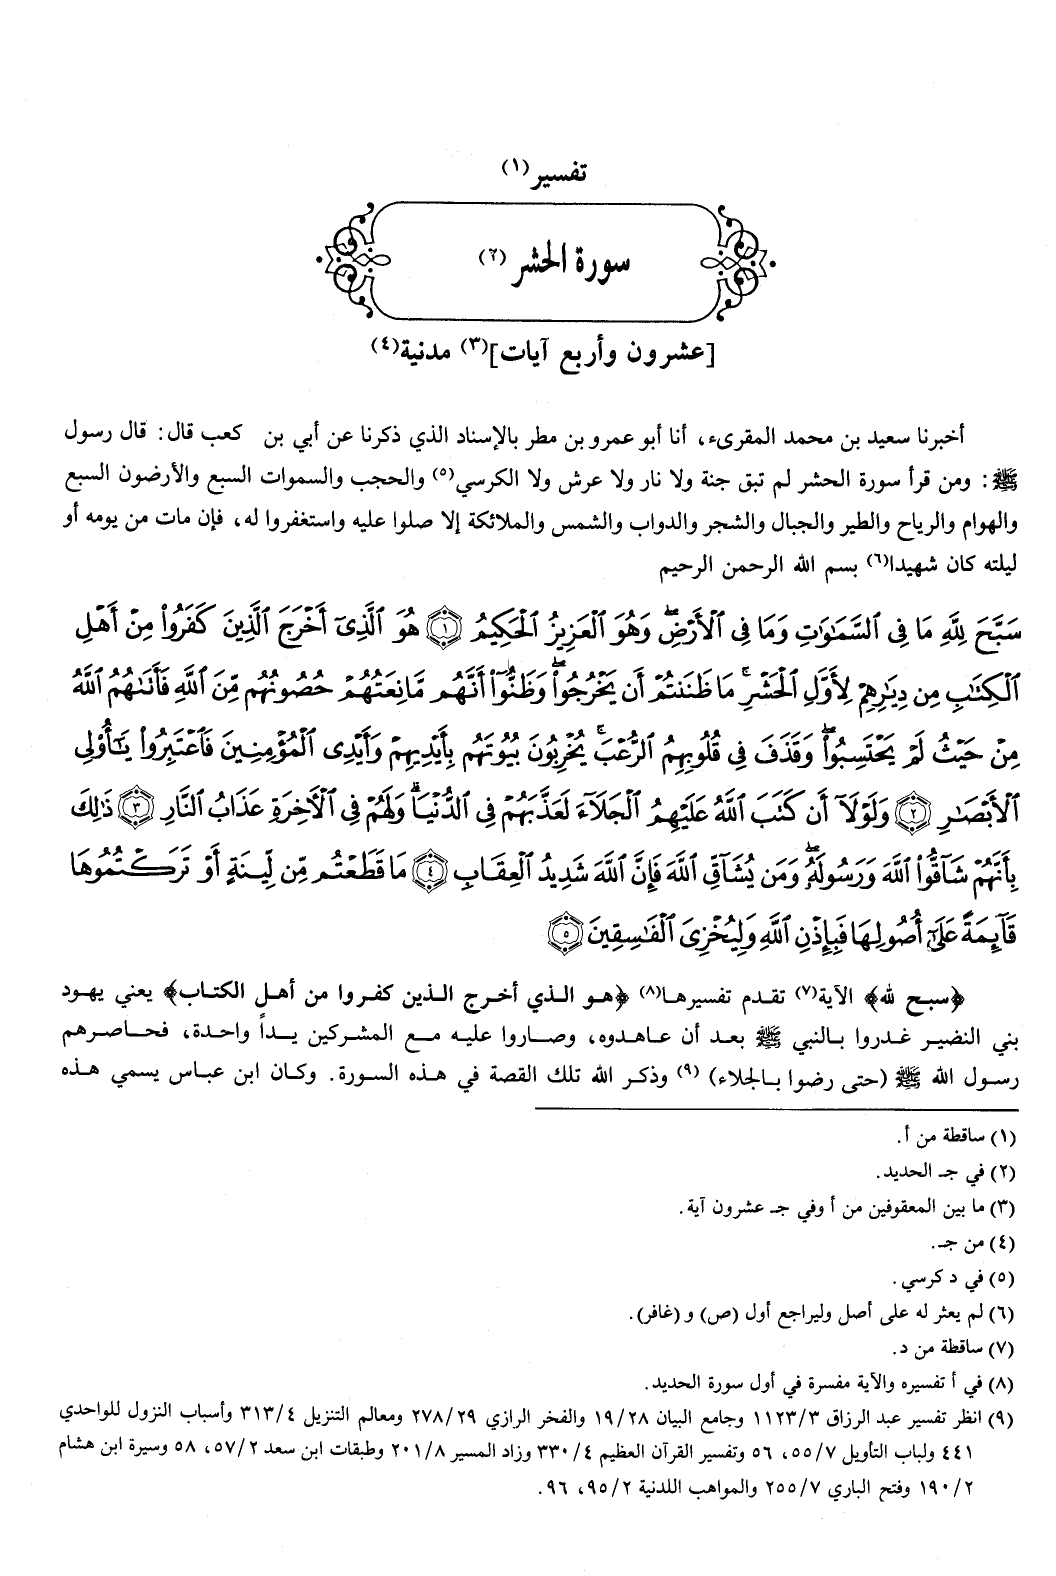 تفسير(١)
سورة الحشر (٢)
[عشرون وأربع آيات](٣) مدنية(٤)
أخبرنا سعيد بن محمد المقرىء، أنا أبو عمرو بن مطر بالإسناد الذي ذكرنا عن أبي بن كعب قال: قال رسول
ﷺ: ومن قرأ سورة الحشر لم تبق جنة ولا نار ولا عرش ولا الكرسي(٥) والحجب والسموات السبع والأرضون السبع
والهوام والرياح والطير والجبال والشجر والدواب والشمس والملائكة إلا صلوا عليه واستغفروا له، فإن مات من يومه أو
ليلته كان شهيدا(٦) بسم الله الرحمن الرحيم
سَبَّحَ لِلَّهِ مَا فِى ٱلسَّمَٰوَٰتِ وَمَا فِى ٱلْأَرْضِۖ وَهُوَ ٱلْعَزِيزُ ٱلْحَكِيمُ ۝١ هُوَ ٱلَّذِىٓ أَخْرَجَ ٱلَّذِينَ كَفَرُوا۟ مِنْ أَهْلِ
ٱلْكِتَٰبِ مِن دِيَٰرِهِمْ لِأَوَّلِ ٱلْحَشْرِۚ مَا ظَنَنتُمْ أَن يَخْرُجُوا۟ۖ وَظَنُّوٓا۟ أَنَّهُم مَّانِعَتُهُمْ حُصُونُهُم مِّنَ ٱللَّهِ فَأَتَىٰهُمُ ٱللَّهُ
مِنْ حَيْثُ لَمْ يَحْتَسِبُوا۟ۖ وَقَذَفَ فِى قُلُوبِهِمُ ٱلرُّعْبَۚ يُخْرِبُونَ بُيُوتَهُم بِأَيْدِيهِمْ وَأَيْدِى ٱلْمُؤْمِنِينَ فَٱعْتَبِرُوا۟ يَٰٓأُو۟لِى
ٱلْأَبْصَٰرِ ۝٢ وَلَوْلَآ أَن كَتَبَ ٱللَّهُ عَلَيْهِمُ ٱلْجَلَآءَ لَعَذَّبَهُمْ فِى ٱلدُّنْيَاۖ وَلَهُمْ فِى ٱلْءَاخِرَةِ عَذَابُ ٱلنَّارِ ۝٣ ذَٰلِكَ
بِأَنَّهُمْ شَآقُّوا۟ ٱللَّهَ وَرَسُولَهُۥۖ وَمَن يُشَآقِّ ٱللَّهَ فَإِنَّ ٱللَّهَ شَدِيدُ ٱلْعِقَابِ ۝٤ مَا قَطَعْتُم مِّن لِّينَةٍ أَوْ تَرَكْتُمُوهَا
قَآئِمَةً عَلَىٰٓ أُصُولِهَا فَبِإِذْنِ ٱللَّهِ وَلِيُخْزِىَ ٱلْفَٰسِقِينَ ۝٥
﴿سبح لله﴾ الآية(٧) تقدم تفسيرها(٨) ﴿هو الذي أخرج الذين كفروا من أهل الكتاب﴾ يعني يهود
بني النضير غدروا بالنبي ﷺ بعد أن عاهدوه، وصاروا عليه مع المشركين يداً واحدة، فحاصرهم
رسول الله ﷺ (حتى رضوا بالجلاء) (٩) وذكر الله تلك القصة في هذه السورة. وكان ابن عباس يسمي هذه
(١) ساقطة من أ.
(٢) في جـ الحديد.
(٣) ما بين المعقوفين من أ وفي جـ عشرون آية.
(٤) من جـ.
(٥) في د كرسي.
(٦) لم يعثر له على أصل وليراجع أول (ص) و (غافر).
(٧) ساقطة من د.
(٨) في أ تفسيره والآية مفسرة في أول سورة الحديد.
(٩) انظر تفسير عبد الرزاق ١١٢٣/٣ وجامع البيان ١٩/٢٨ والفخر الرازي ٢٧٨/٢٩ ومعالم التنزيل ٣١٣/٤ وأسباب النزول للواحدي
٤٤١ ولباب التأويل ٥٥/٧، ٥٦ وتفسير القرآن العظيم ٣٣٠/٤ وزاد المسير ٢٠١/٨ وطبقات ابن سعد ٥٧/٢، ٥٨ وسيرة ابن هشام
١٩٠/٢ وفتح الباري ٢٥٥/٧ والمواهب اللدنية ٩٥/٢، ٩٦.